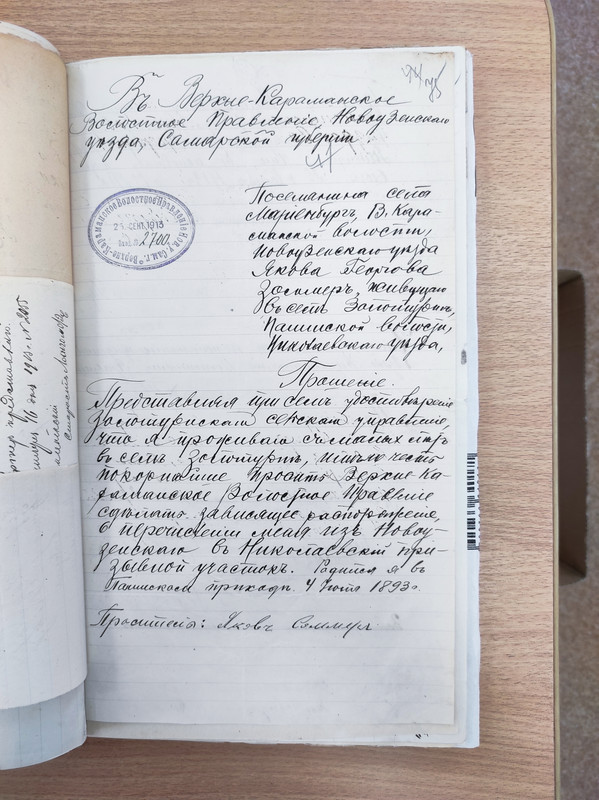 Въ Верхне-Караманское
Волостное Правленіе, Новоузенскаго
уѣзда, Самарской губерніи.
25 СЕНТ. 1913
2700
Поселянина села
Маріенбургъ, В. Кара-
манской волости,
Новоузенскаго уѣзда
Якова Георгова
живущаго
въ селѣ Золотурнъ,
Панинской волости,
Николаевскаго уѣзда,
Прошеніе.
Представляя при семъ удостовѣреніе
Золотурнскаго сельскаго управленія,
что я проживаю съ малыхъ лѣтъ
въ селѣ Золотурнъ, имѣю честь
покорнѣйше просить Верхне-Ка-
раманское Волостное Правленіе
сдѣлать зависящее распоряженіе,
о перечисленіи меня изъ Новоу-
зенскаго въ Николаевскій при-
зывной участокъ. Родился я въ
Панинскомъ приходѣ 4 1893 г.
Проситель: Яковъ